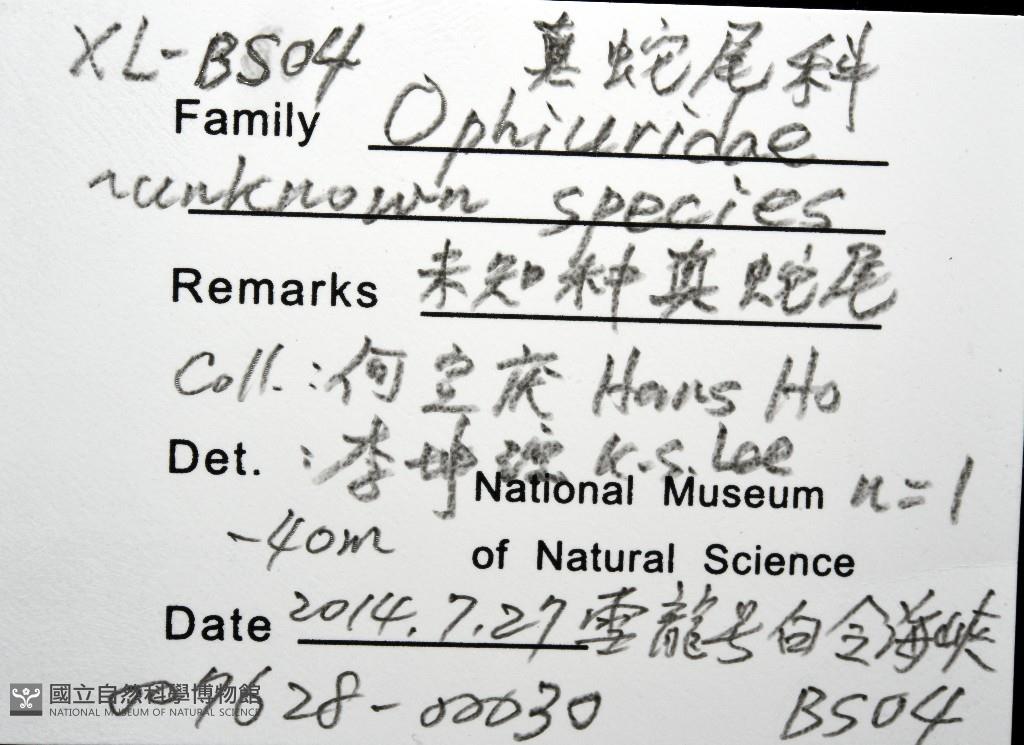 XL-BS04 真蛇尾科
Family Ophiuridae
~unknown species
Remarks 未知种真蛇尾
Coll.:何宣庆 Hans Ho
Det.:李坤 K.S. Lee
National Museum n=1
-40m of Natural Science
Date 2014.7.27 雪龍号白令海峡
7628-00030 BS04
國立自然科學博物館
NATIONAL MUSEUM OF NATURAL SCIENCE